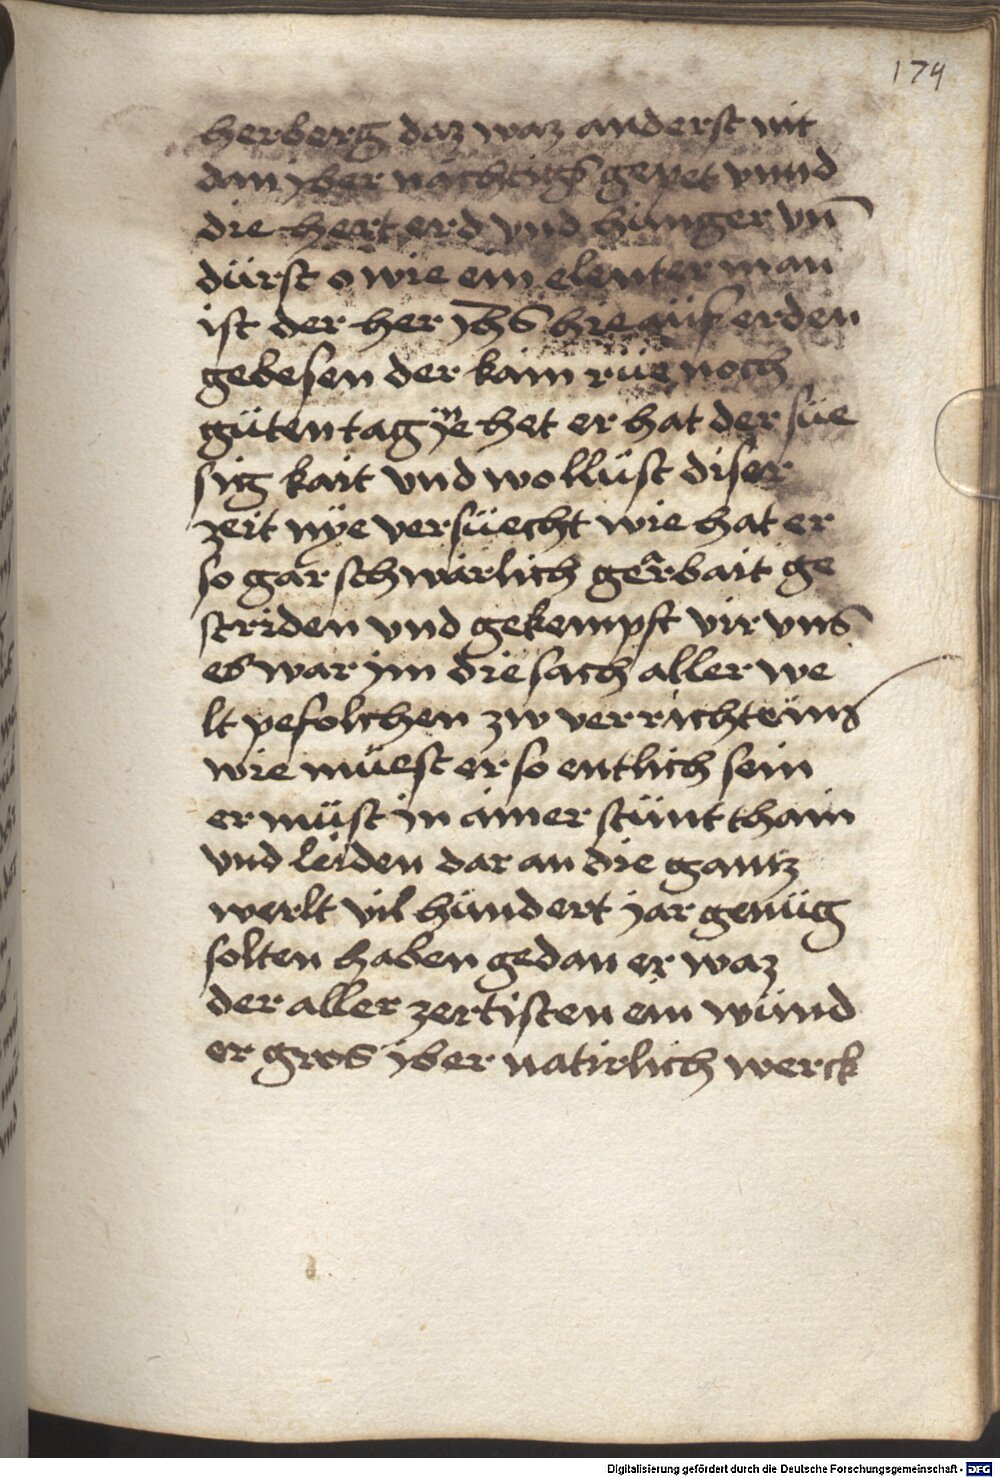 174
herberg daz waz anderst nit
dan yber nächtigs gepet vnnd
die hert erd vnd hünger vn̄
dürst o wie ein elenter man
ist der her yh̄s hie aüf erden
gebesen der kain rüe noch
güten tag ye het er hat der süe
sig kait vnd wollüst diser
zeit nÿe versüecht wie hat er
so gar schwärlich gerbait ge
striden vnd gekempft vir vns
es war im die sach aller we
lt pefolchen zw ver richten
wie müest er so entlich sein
er müst in ainer stünt thain
vnd leiden dar an die gantz
werlt vil hündert jar genüg
solten haben gedan er waz
der aller zertisten ein wünd
er gros yber natirlich werck
Digitalisierung gefördert durch die Deutsche Forschungsgemeinschaft - DFG